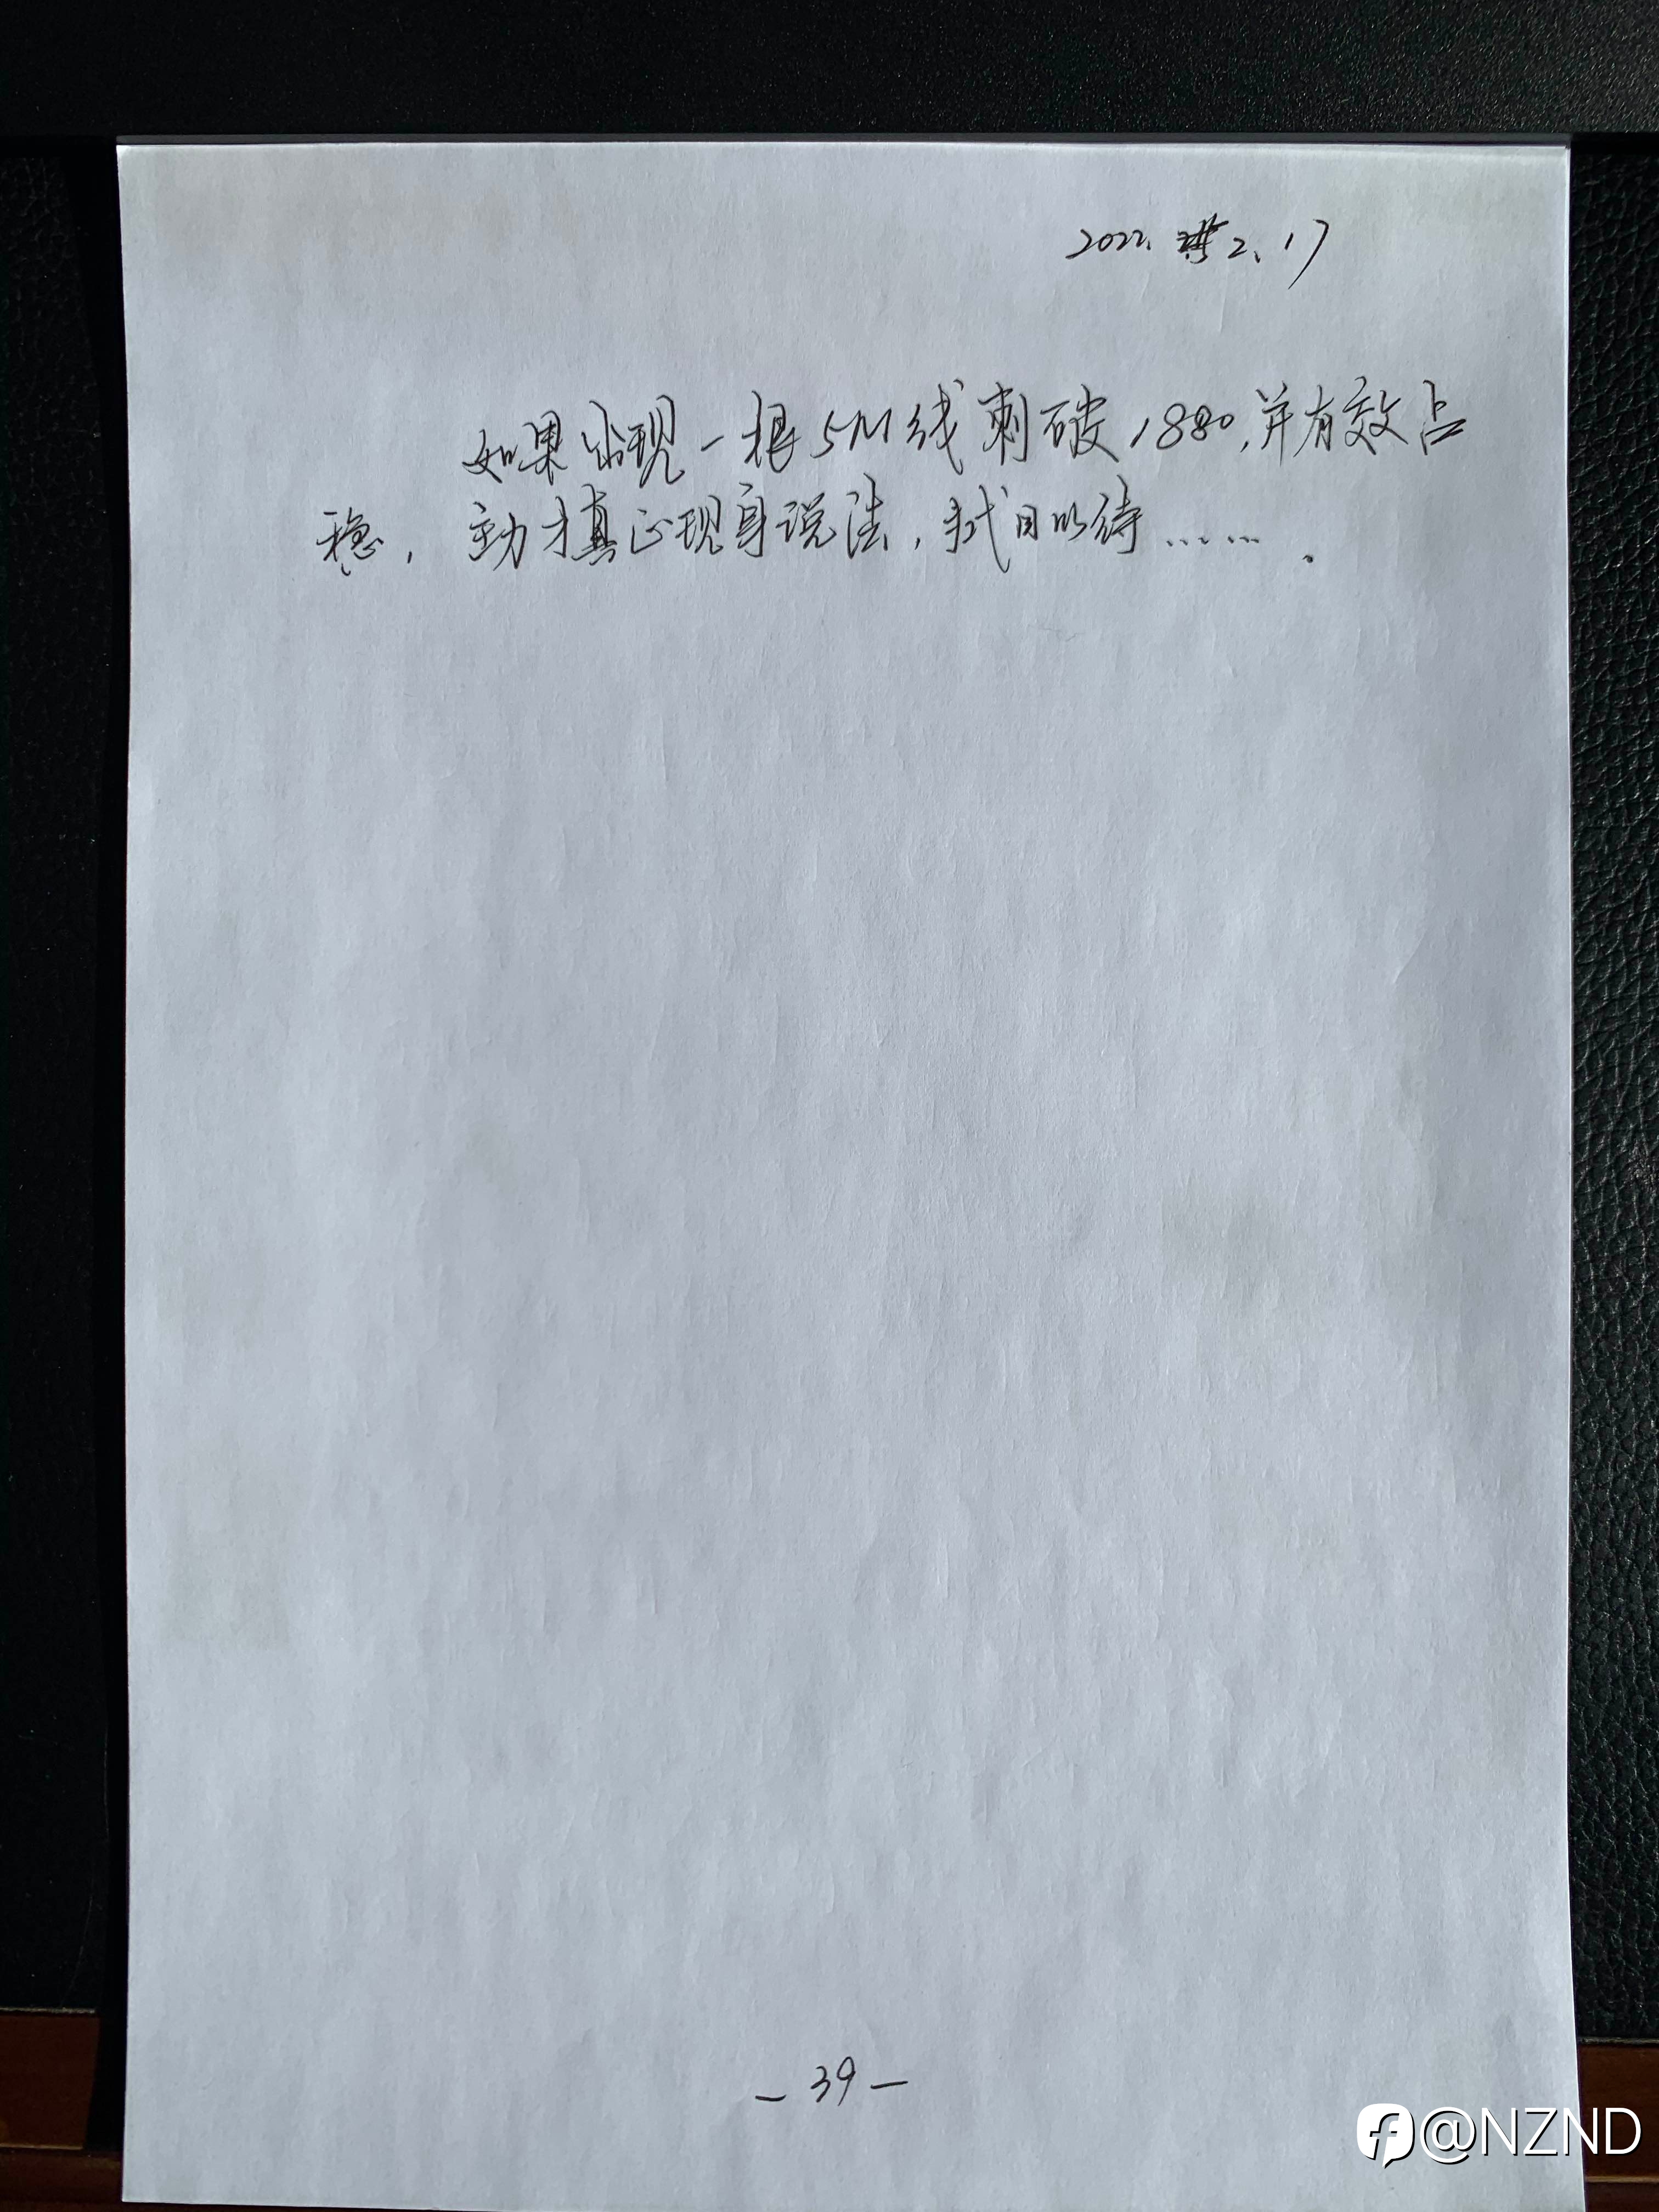 2022. 2.17
如果出现一根5M线刺破1880,并有效占
稳,主力才真正现身说法,拭目以待…….
-39-
@NZND